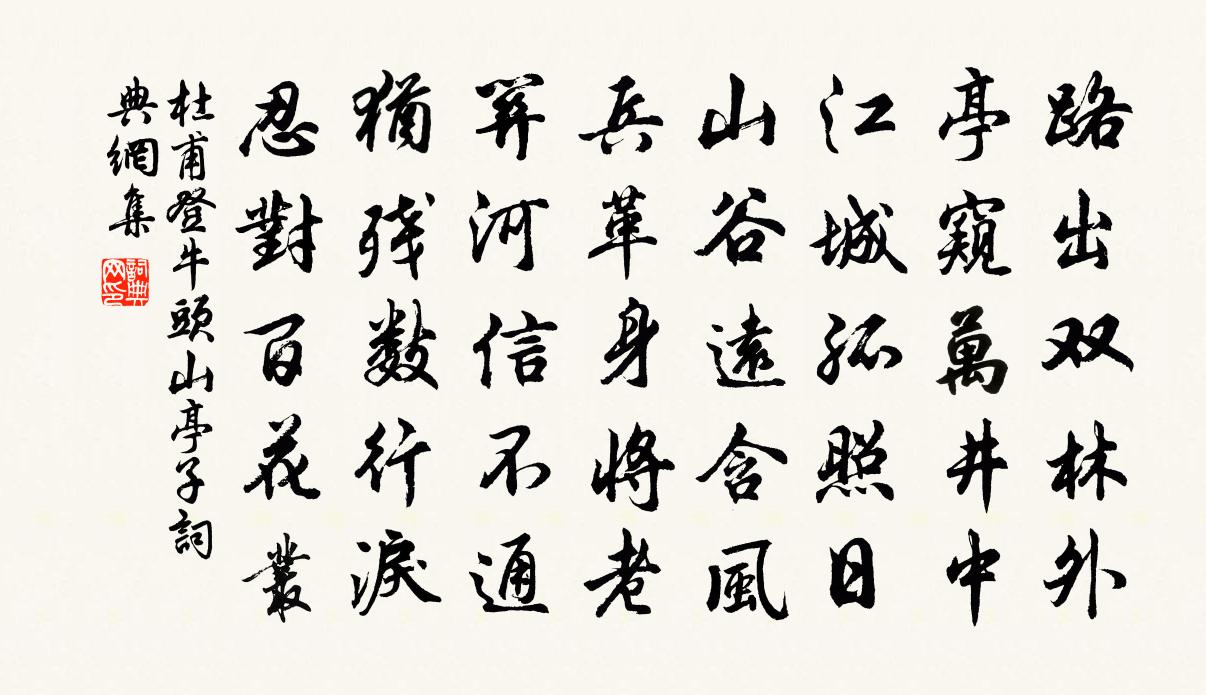 路出双林外
亭窺萬井中
江城孤照日
山谷遠含風
兵革身將老
關河信不通
猶殘數行淚
忍對百花叢
杜甫登牛頭山亭子詞
典網集
詞典网印